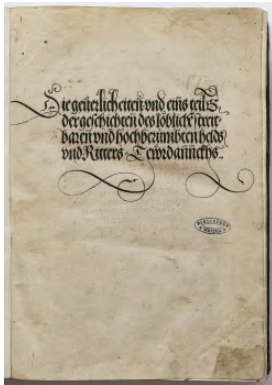 Die geuerlicheiten vnd eins teils
der geschichten des loblichen streit-
baren vnd hochberümbten helds
vnd Ritters Tewrdannckhs